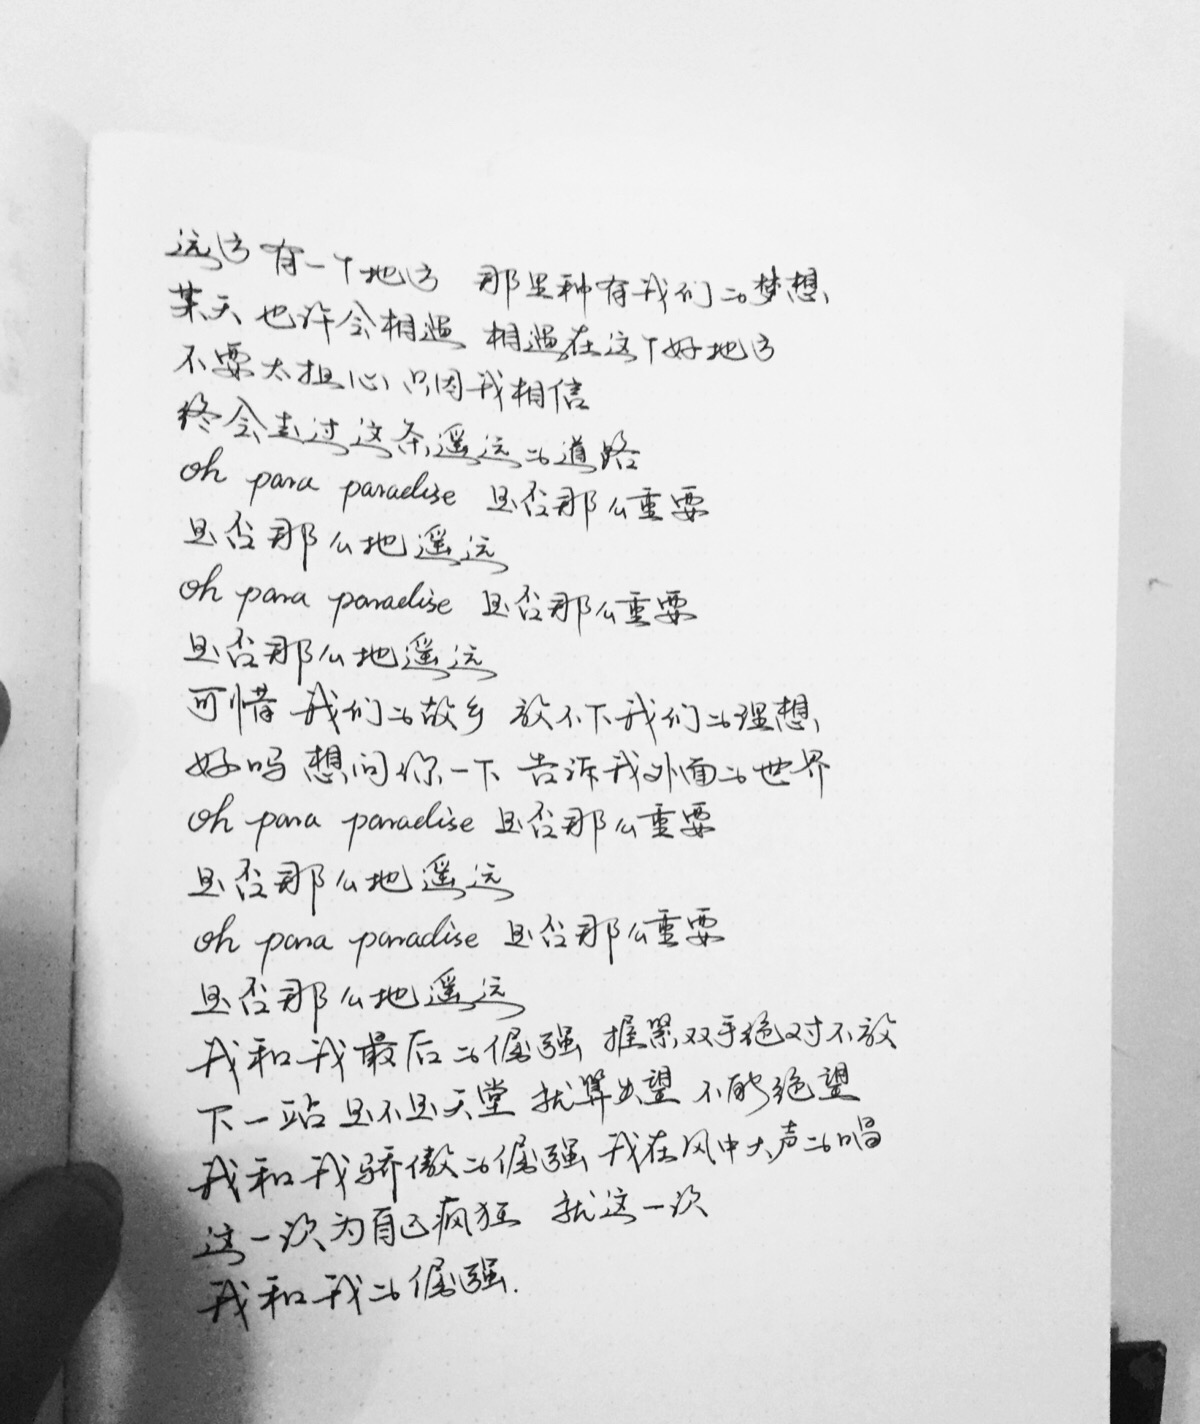 远方有一个地方 那里种有我们的梦想
某天也许会相遇 相遇在这个好地方
不要太担心 只因我相信
终会走过这条遥远的道路
oh para paradise 是否那么重要
是否那么地遥远
oh para paradise 是否那么重要
是否那么地遥远
可惜我们的故乡 放不下我们的理想
好吗 想问你一下 告诉我外面的世界
oh para paradise 是否那么重要
是否那么地遥远
oh para paradise 是否那么重要
是否那么地遥远
我和我最后的倔强 握紧双手绝对不放
下一站是不是天堂 就算失望 不能绝望
我和我骄傲的倔强 我在风中大声的唱
这一次为自己疯狂 就这一次
我和我的倔强.